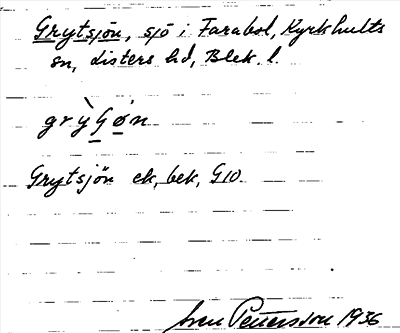 Grytsjön, sjö i Farabol, Kyrkhults
sn, Listers hd, Blek. l.
grỳGøn
Grytsjön ek, bek, G10
Sven Pettersson 1936